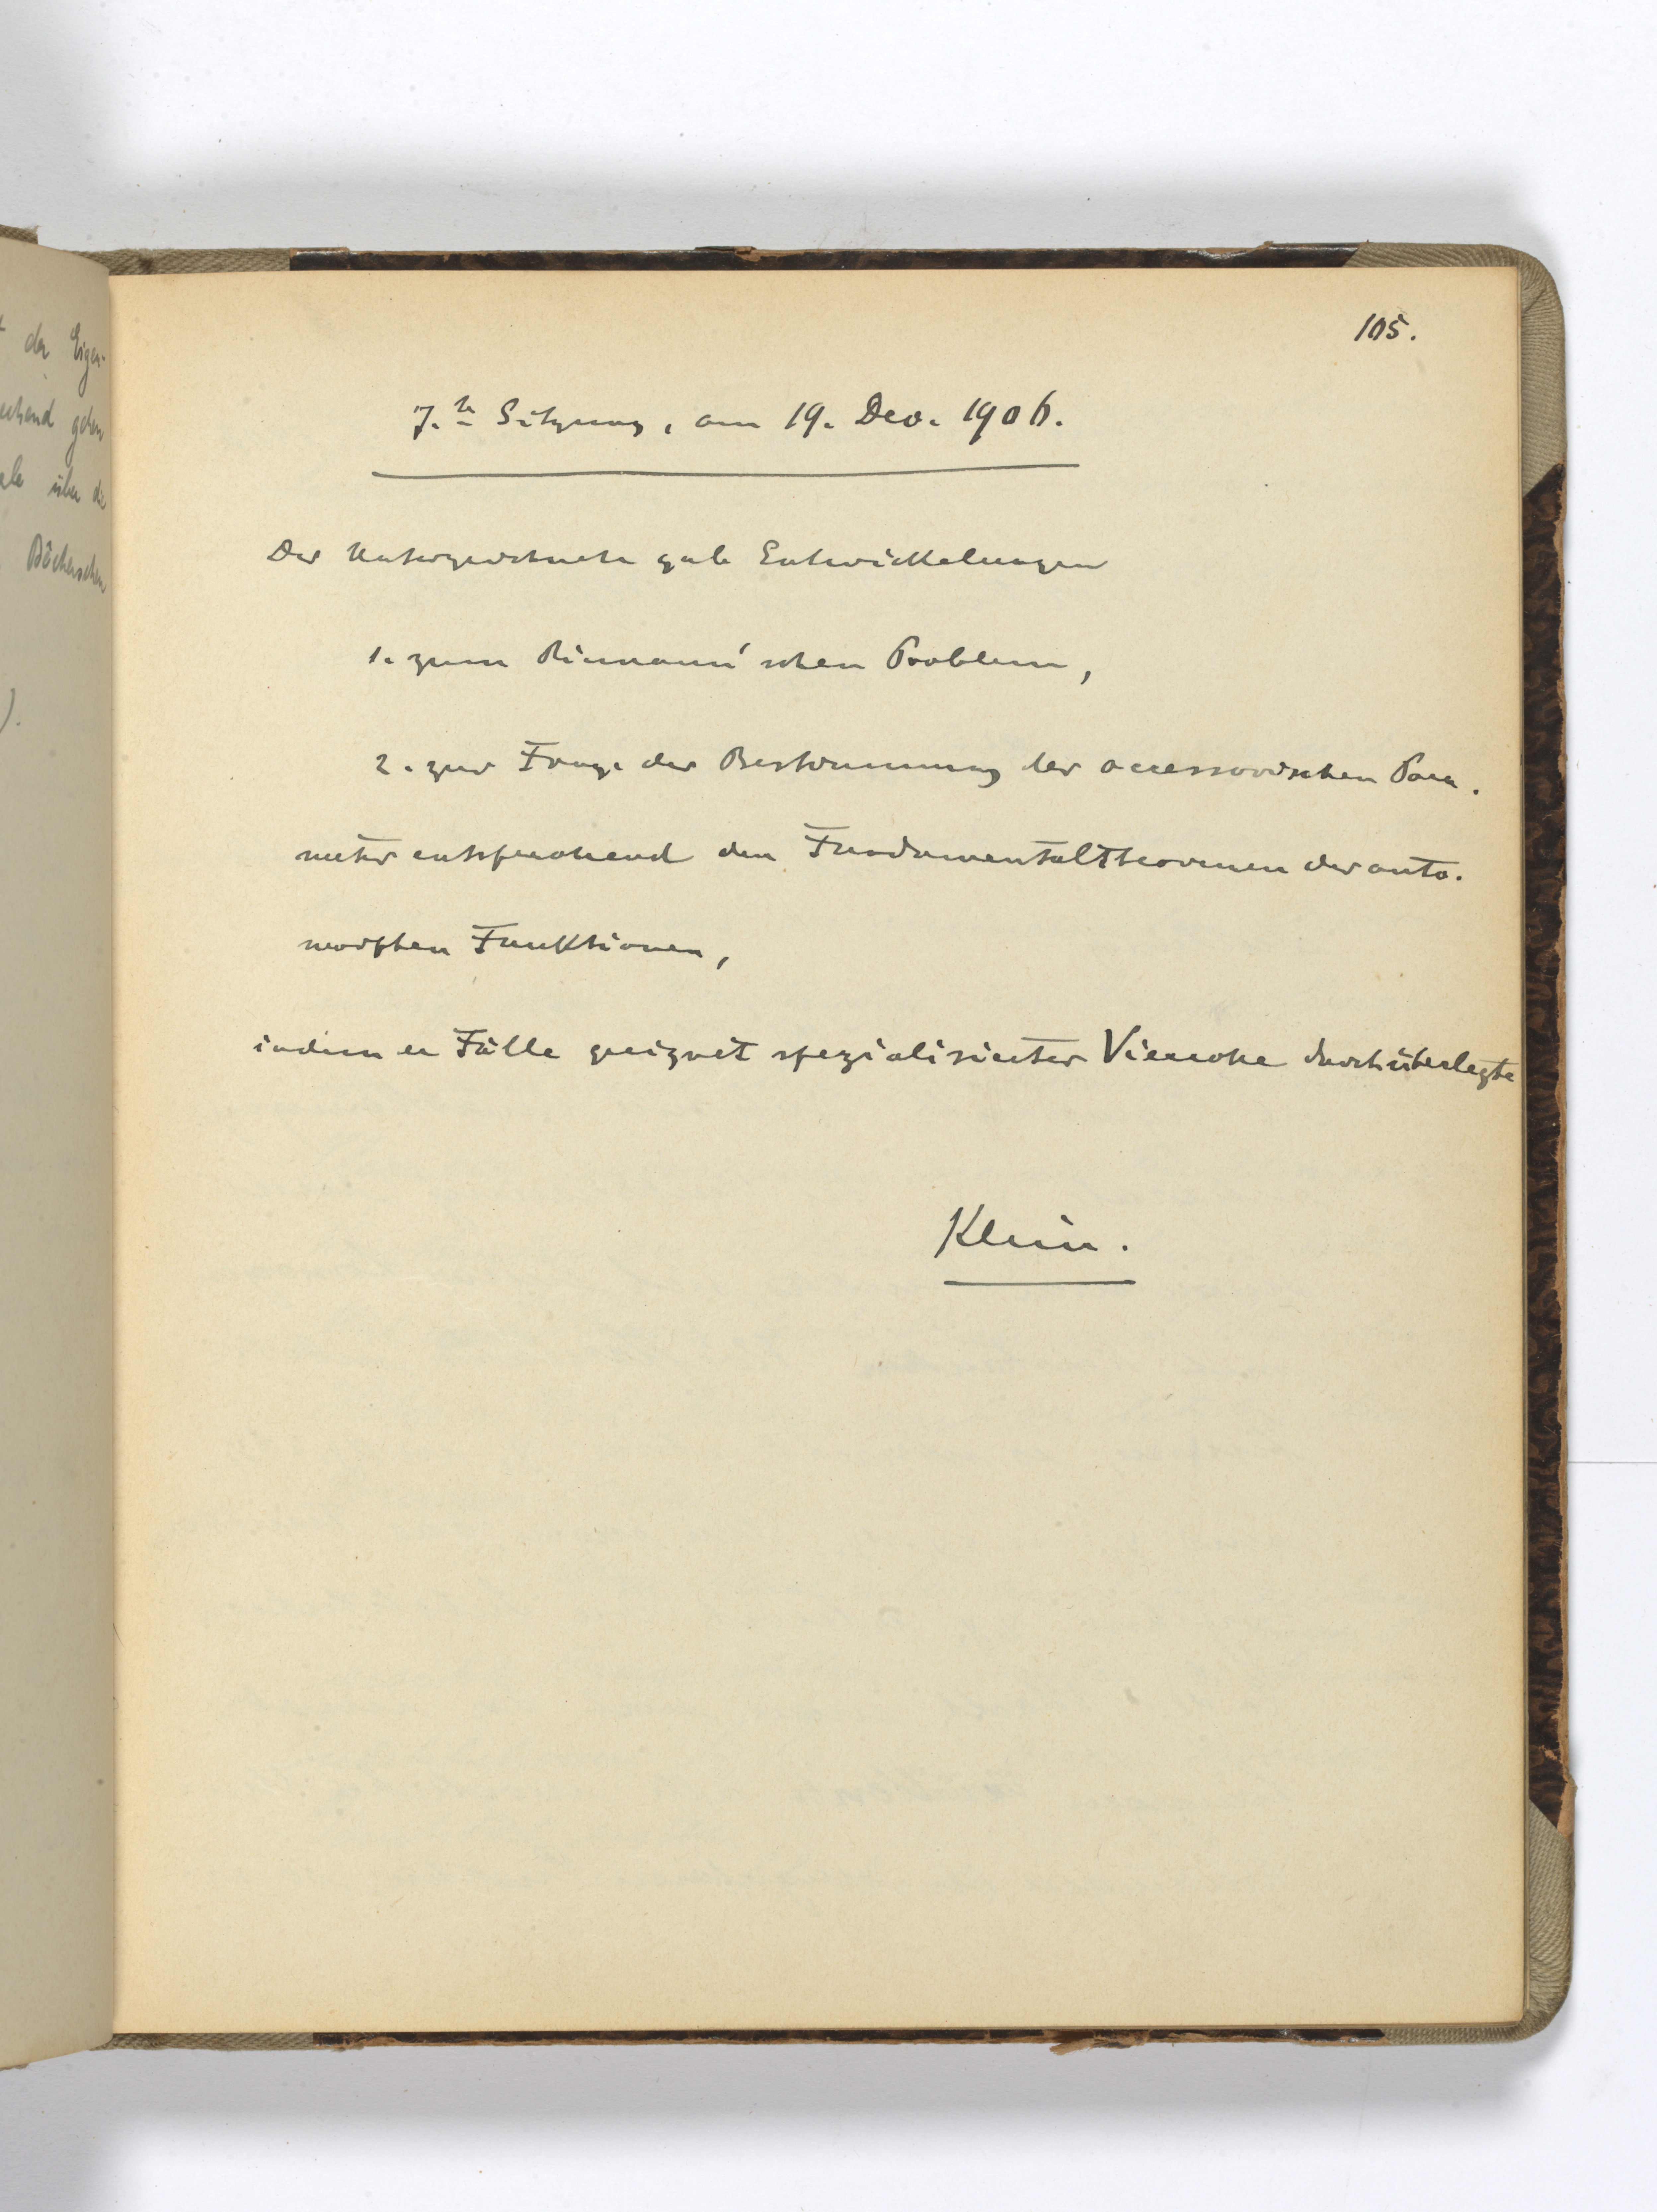 der Eigen-
gehen
über die
Bôcherschen
).
105.
7.te Sitzung, am 19. Dec. 1906.
Der Unterzeichnete gab Entwickelungen
1. zum Riemann'schen Problem,
2. zur Frage der Bestimmung der accessorischen Para-
meter entsprechend den Fundamentaltheoremen der auto-
morphen Funktionen,
indem er Fälle geeignet spezialisierter Vierecke durchüberlegte
Klein.